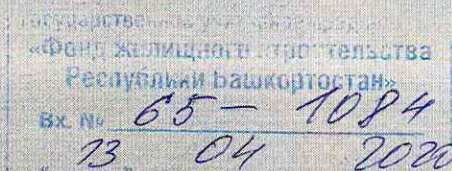 «Фонд жилищного строительства
Республики Башкортостан»
Вх. № 65 - 1084
13 04 2020